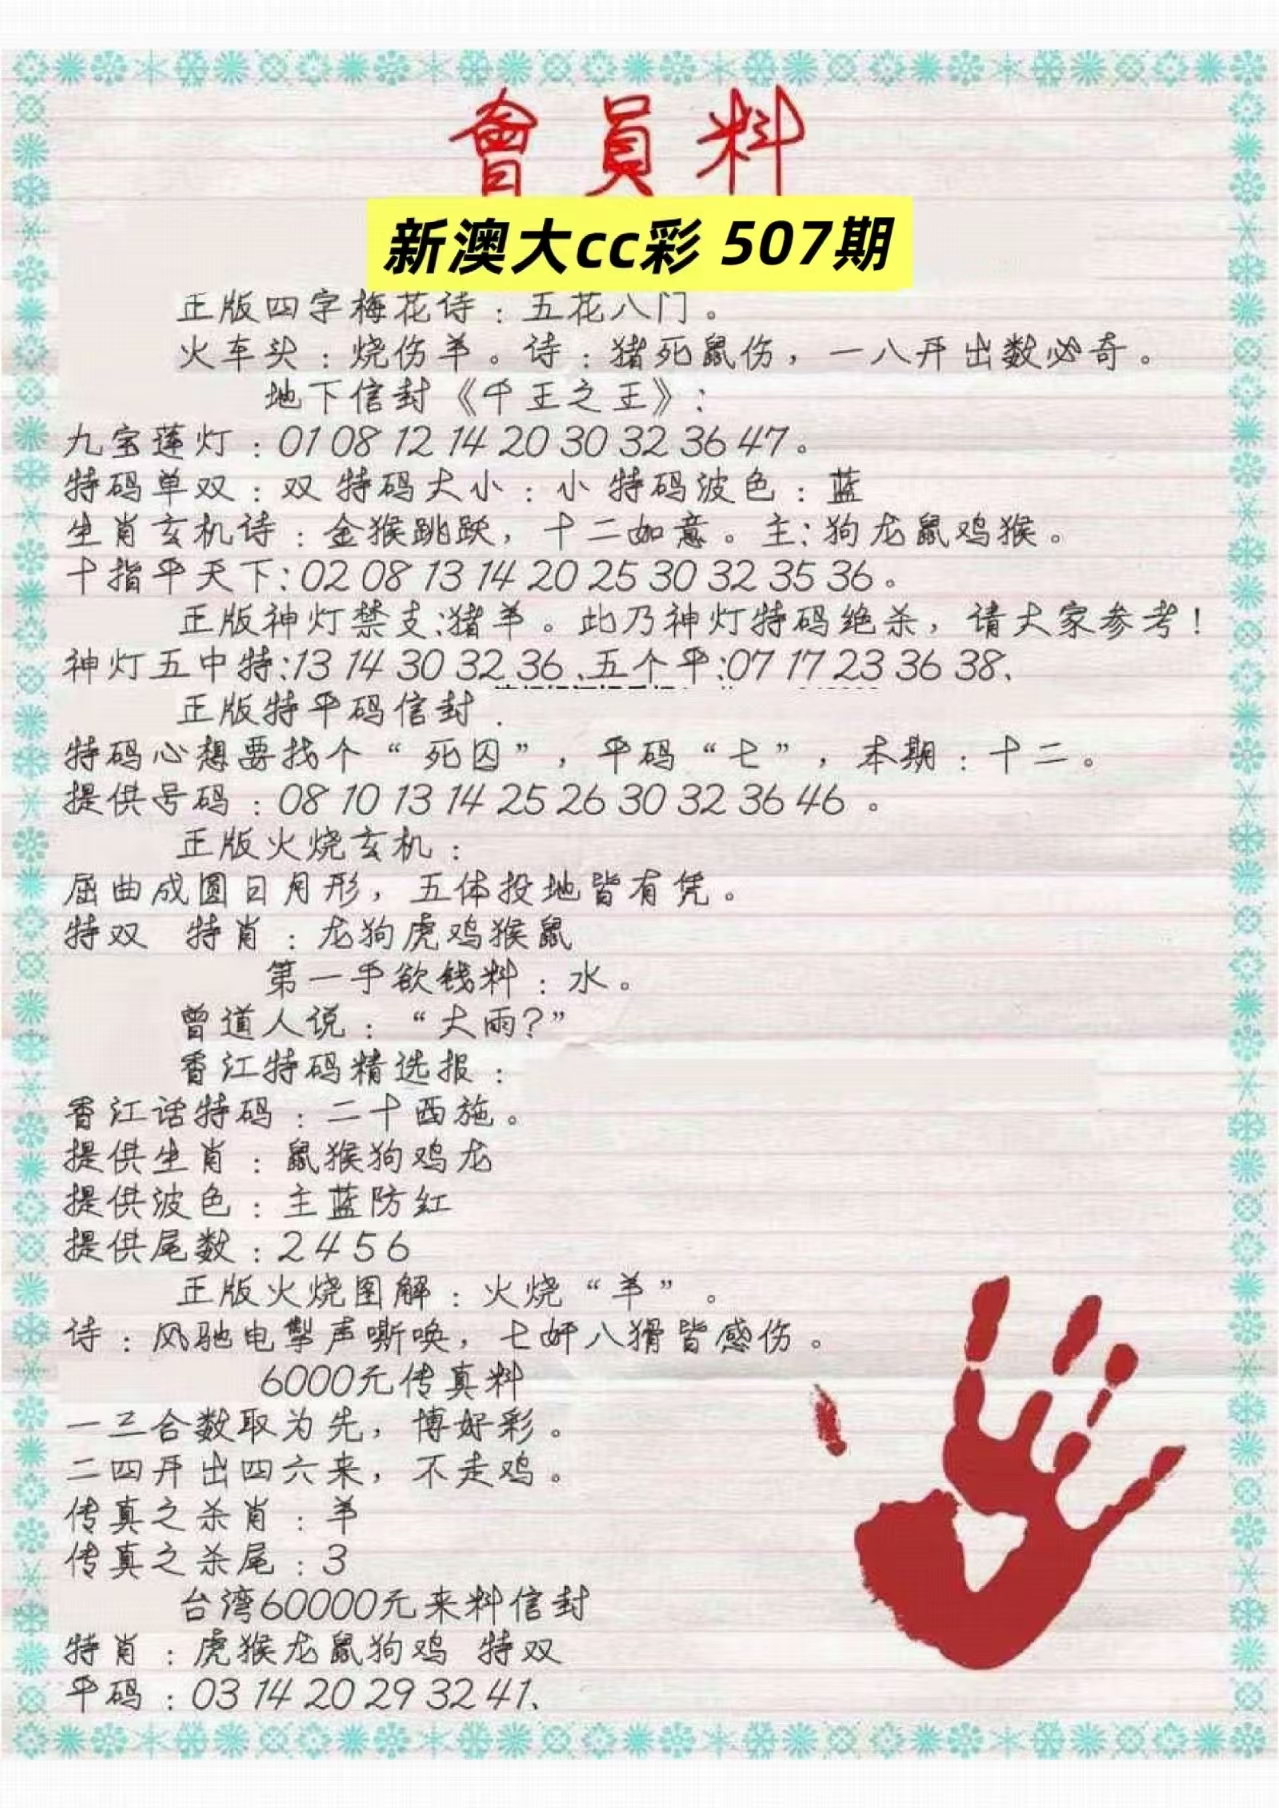 會員料
新澳大cc彩 507期
正版四字梅花诗：五花八门。
火车头：烧伤羊。诗：猪死鼠伤，一八开出数必奇。
地下信封《千王之王》：
九宝莲灯：01 08 12 14 20 30 32 36 47。
特码单双：双 特码大小：小 特码波色：蓝
生肖玄机诗：金猴跳跃，十二如意。主：狗龙鼠鸡猴。
十指平天下：02 08 13 14 20 25 30 32 35 36。
正版神灯禁支：猪羊。此乃神灯特码绝杀，请大家参考！
神灯五中特：13 14 30 32 36、五个平：07 17 23 36 38、
正版特平码信封．
特码心想要找个“死囚”，平码“七”，本期：十二。
提供号码：08 10 13 14 25 26 30 32 36 46。
正版火烧玄机：
屈曲成圆日月形，五体投地皆有凭。
特双 特肖：龙狗虎鸡猴鼠
第一手欲钱料：水。
曾道人说：“大雨？”
香江特码精选报：
香江话特码：二十西施。
提供生肖：鼠猴狗鸡龙
提供波色：主蓝防红
提供尾数：2 4 5 6
正版火烧图解：火烧“羊”。
诗：风驰电掣声嘶唤，七奸八猾皆感伤。
6000元传真料
一三合数取为先，博好彩。
二四开出四六来，不走鸡。
传真之杀肖：羊
传真之杀尾：3
台湾60000元来料信封
特肖：虎猴龙鼠狗鸡 特双
平码：03 14 20 29 32 41、